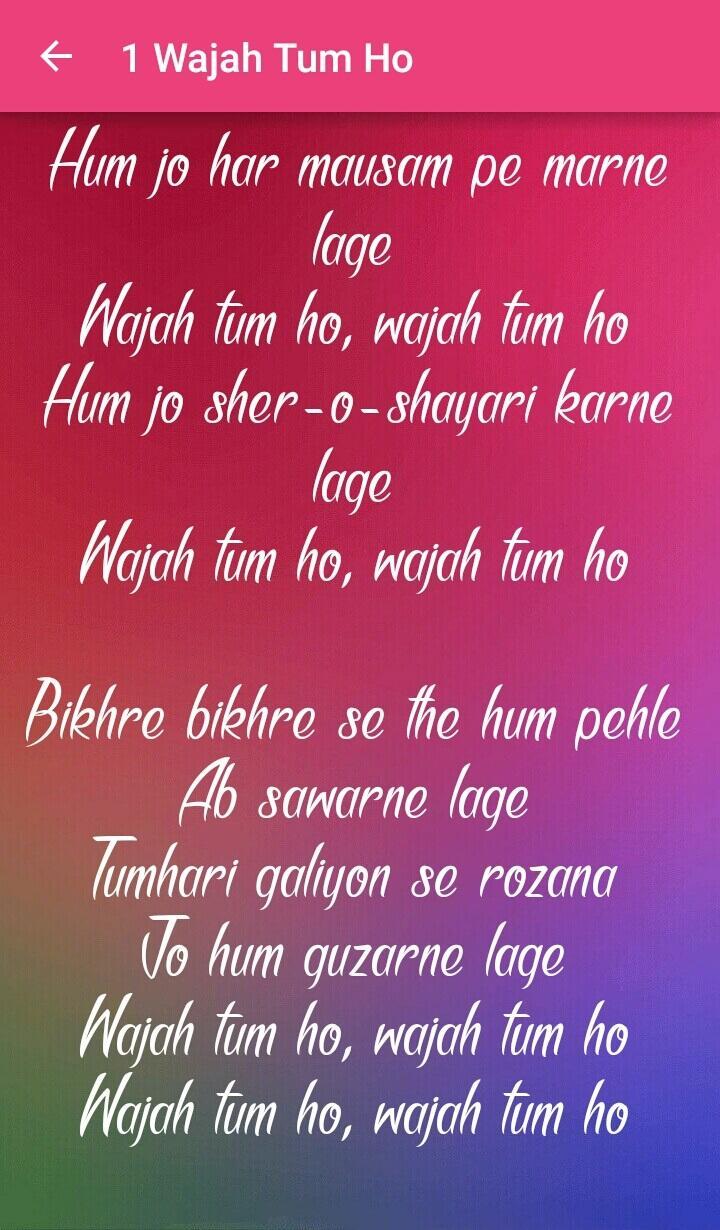 1 Wajah Tum Ho
Hum jo har mausam pe marne
lage
Wajah tum ho, wajah tum ho
Hum jo sher-o-shayari karne
lage
Wajah tum ho, wajah tum ho
Bikhre bikhre se the hum pehle
Ab sawarne lage
Tumhari galiyon se rozana
Jo hum guzarne lage
Wajah tum ho, wajah tum ho
Wajah tum ho, wajah tum ho